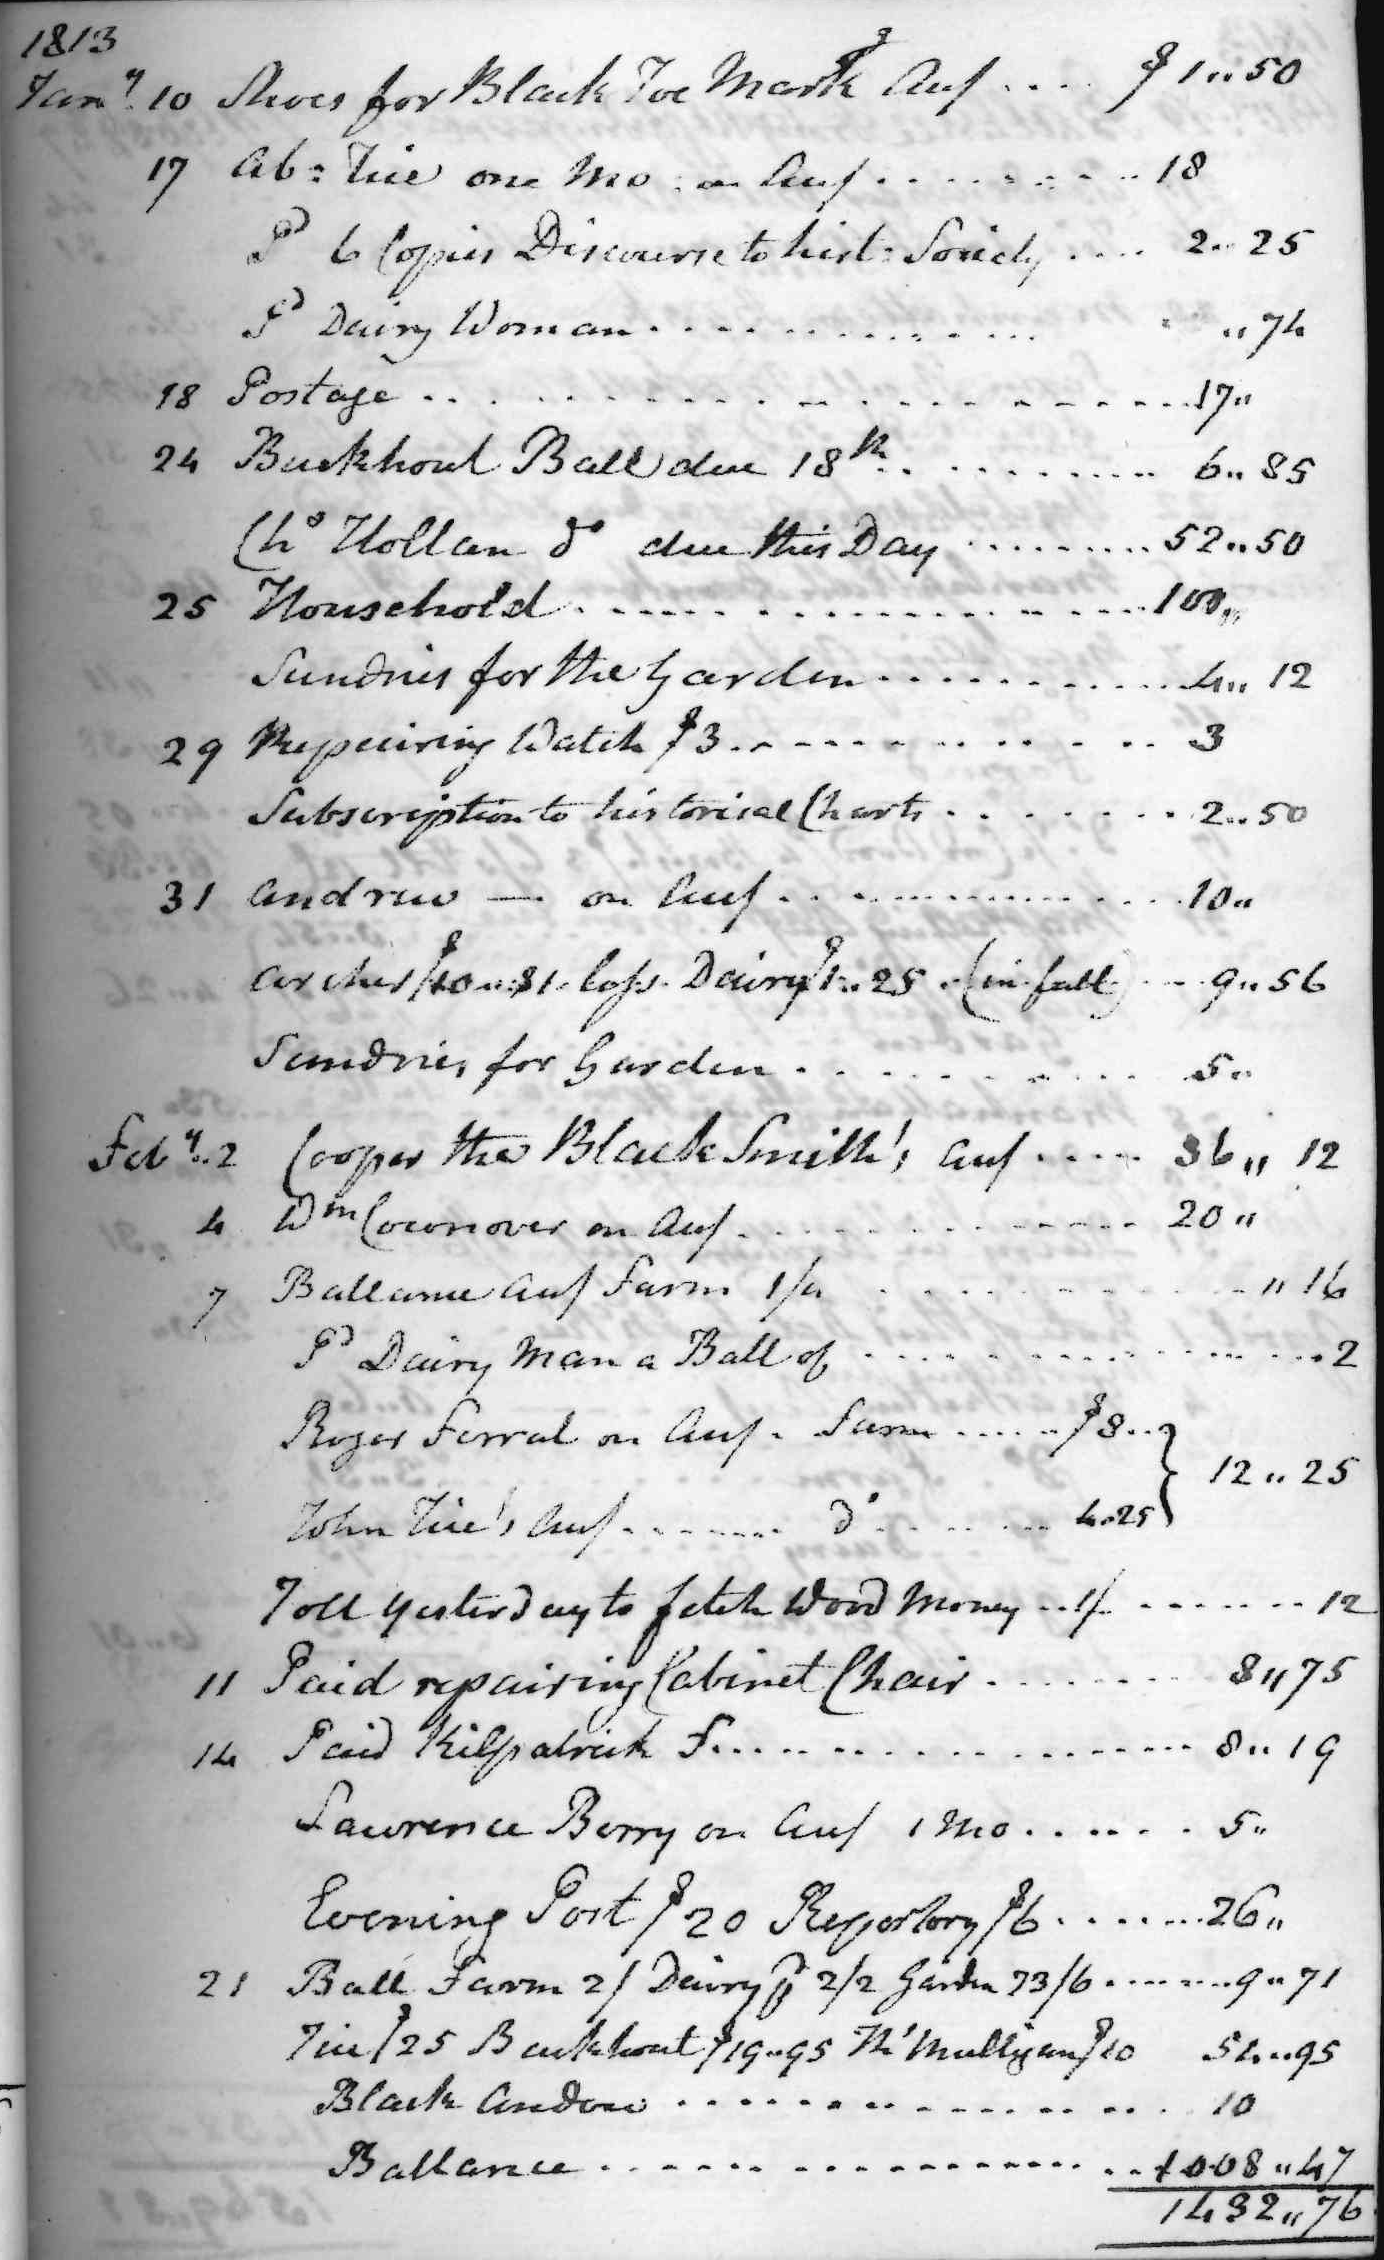 1813
Jany. 10 Shoes for Black Joe Mark $ Acct .... $1..50
17 Ab: Tice one Mo: on Acct .......... 18
Pd 6 Copies Discourse to hist: Society .... 2..25
Pd Dairy Woman ............. "74
18 Postage ............... 17"
24 Buckhout Ball due 18th .......... 6..85
Chs Hollan do due this Day ......... 52..50
25 Household ............... 100"
Sundries for the Garden ............ 4" 12
29 Repairing Watch $3 .......... 3
Subscription to historical Charts ....... 2..50
31 Andrew — on Acct .............. 10"
Archer $10..81. Cops. Dairy $1..25 (in full) ... 9"56
Sundries for Garden .......... 5"
Feby..2 Cooper the Black Smith's Acct ..... 36" 12
4 Wm Cownover on Acct ............ 20"
7 Ballance Acct Farm 1/4 .......... " 16
Pd Dairy Man a Ball of .............. 2
Roger Ferral on Acct. Farm ..... $8.. } 12..25
John Tice's Acct ....... do ....... 4.25
Toll yesterday to fetch Wood Money .. 1/ ....... 12
11 Paid repairing Cabinet Chair ....... 8"75
14 Paid Kilpatrick F ............... 8..19
Lawrence Berry on Acct 1 Mo ...... 5"
Evening Post $20 Repertory $6 ....... 26"
21 Ball Farm 2/ Dairy 2/2 Garden 73/6 ....... 9"71
Tice $25 Buckhout $19..95 Ths Mulligan $10 54..95
Black Andow ............ 10
Ballance ................. 1008"47
1432"76